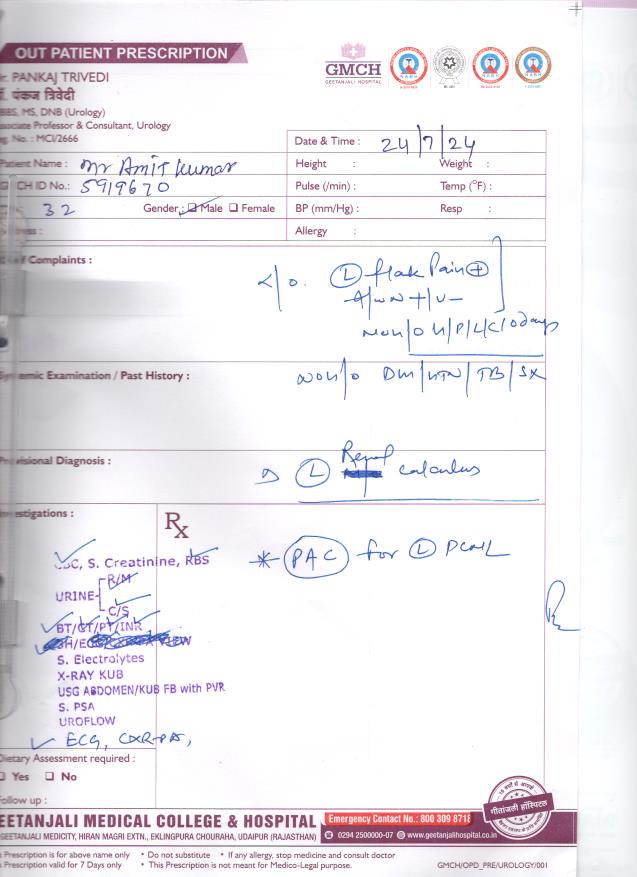 OUT PATIENT PRESCRIPTION
GMCH
GEETANJALI HOSPITAL
r. PANKAJ TRIVEDI
पंकज त्रिवेदी
BBS, MS, DNB (Urology)
ssociate Professor & Consultant, Urology
g. No. : MCI/2666
Date & Time : 24/7/24
Patient Name : Mr Amit Kumar
Height : Weight :
CH ID No.: 5919670
Pulse (/min) : Temp (°F) :
32 Gender : Male Female
BP (mm/Hg) : Resp :
Allergy :
of Complaints :
(L) flank Pain (+)
days
emic Examination / Past History :
DM/HTN/TB/SX
visional Diagnosis :
(L) Renal calculus
estigations :
Rx
CBC, S. Creatinine, RBS
* (PAC) for (L) PCNL
R/M
URINE
C/S
BT/CT/PT/INR
VIEW
S. Electrolytes
X-RAY KUB
USG ABDOMEN/KUB FB with PVR
S. PSA
UROFLOW
ECG, CXR-PA,
Dietary Assessment required :
Yes No
ollow up :
गीतांजली हॉस्पिटल
EETANJALI MEDICAL COLLEGE & HOSPITAL
Emergency Contact No.: 800 309 8718
GEETANJALI MEDICITY, HIRAN MAGRI EXTN., EKLINGPURA CHOURAHA, UDAIPUR (RAJASTHAN)
0294 2500000-07 www.geetanjalihospital.co.in
Prescription is for above name only * Do not substitute * If any allergy, stop medicine and consult doctor
Prescription valid for 7 Days only * This Prescription is not meant for Medico-Legal purpose.
GMCH/OPD_PRE/UROLOGY/001